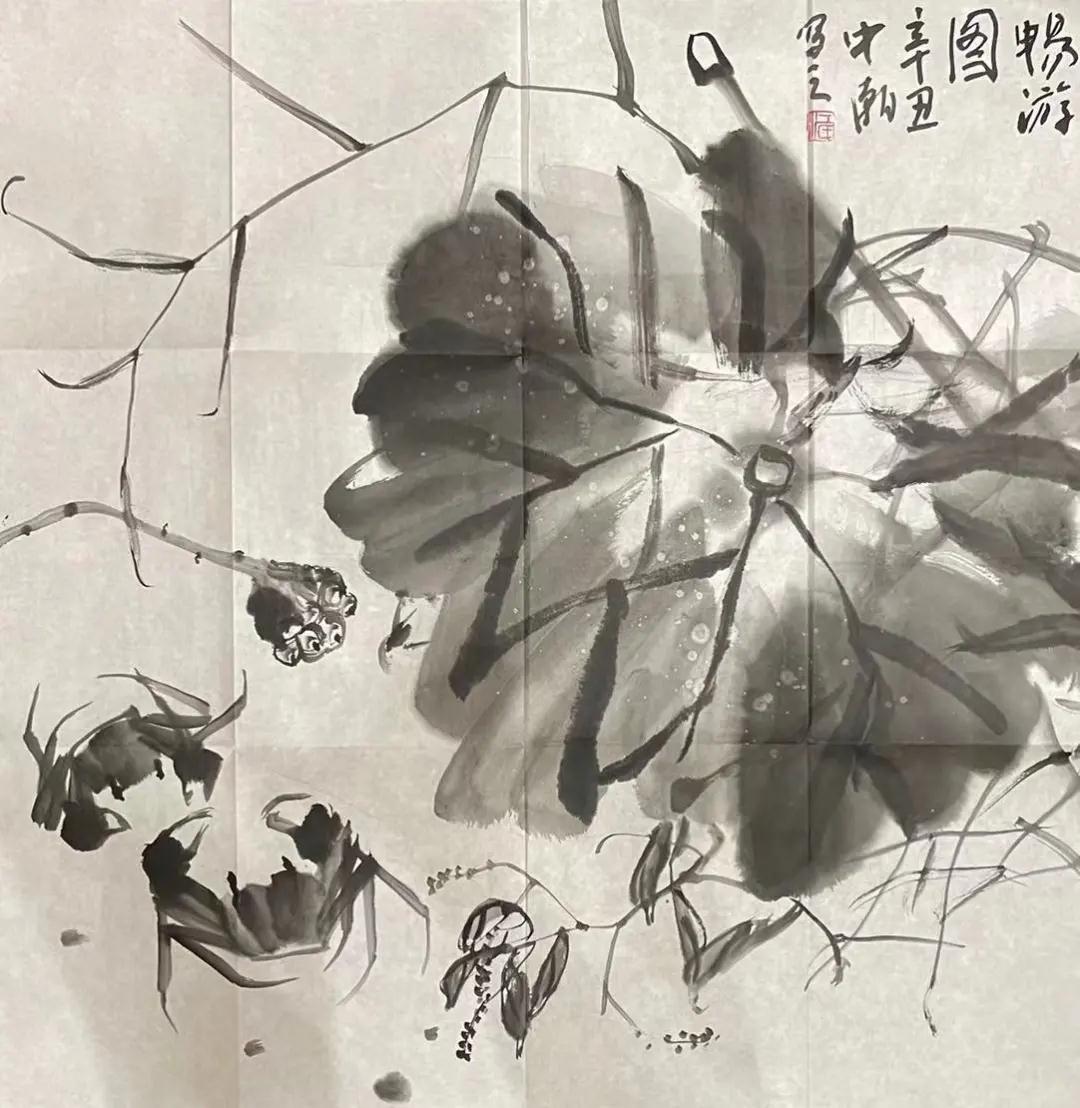 畅游
图
辛丑
中潮
写之